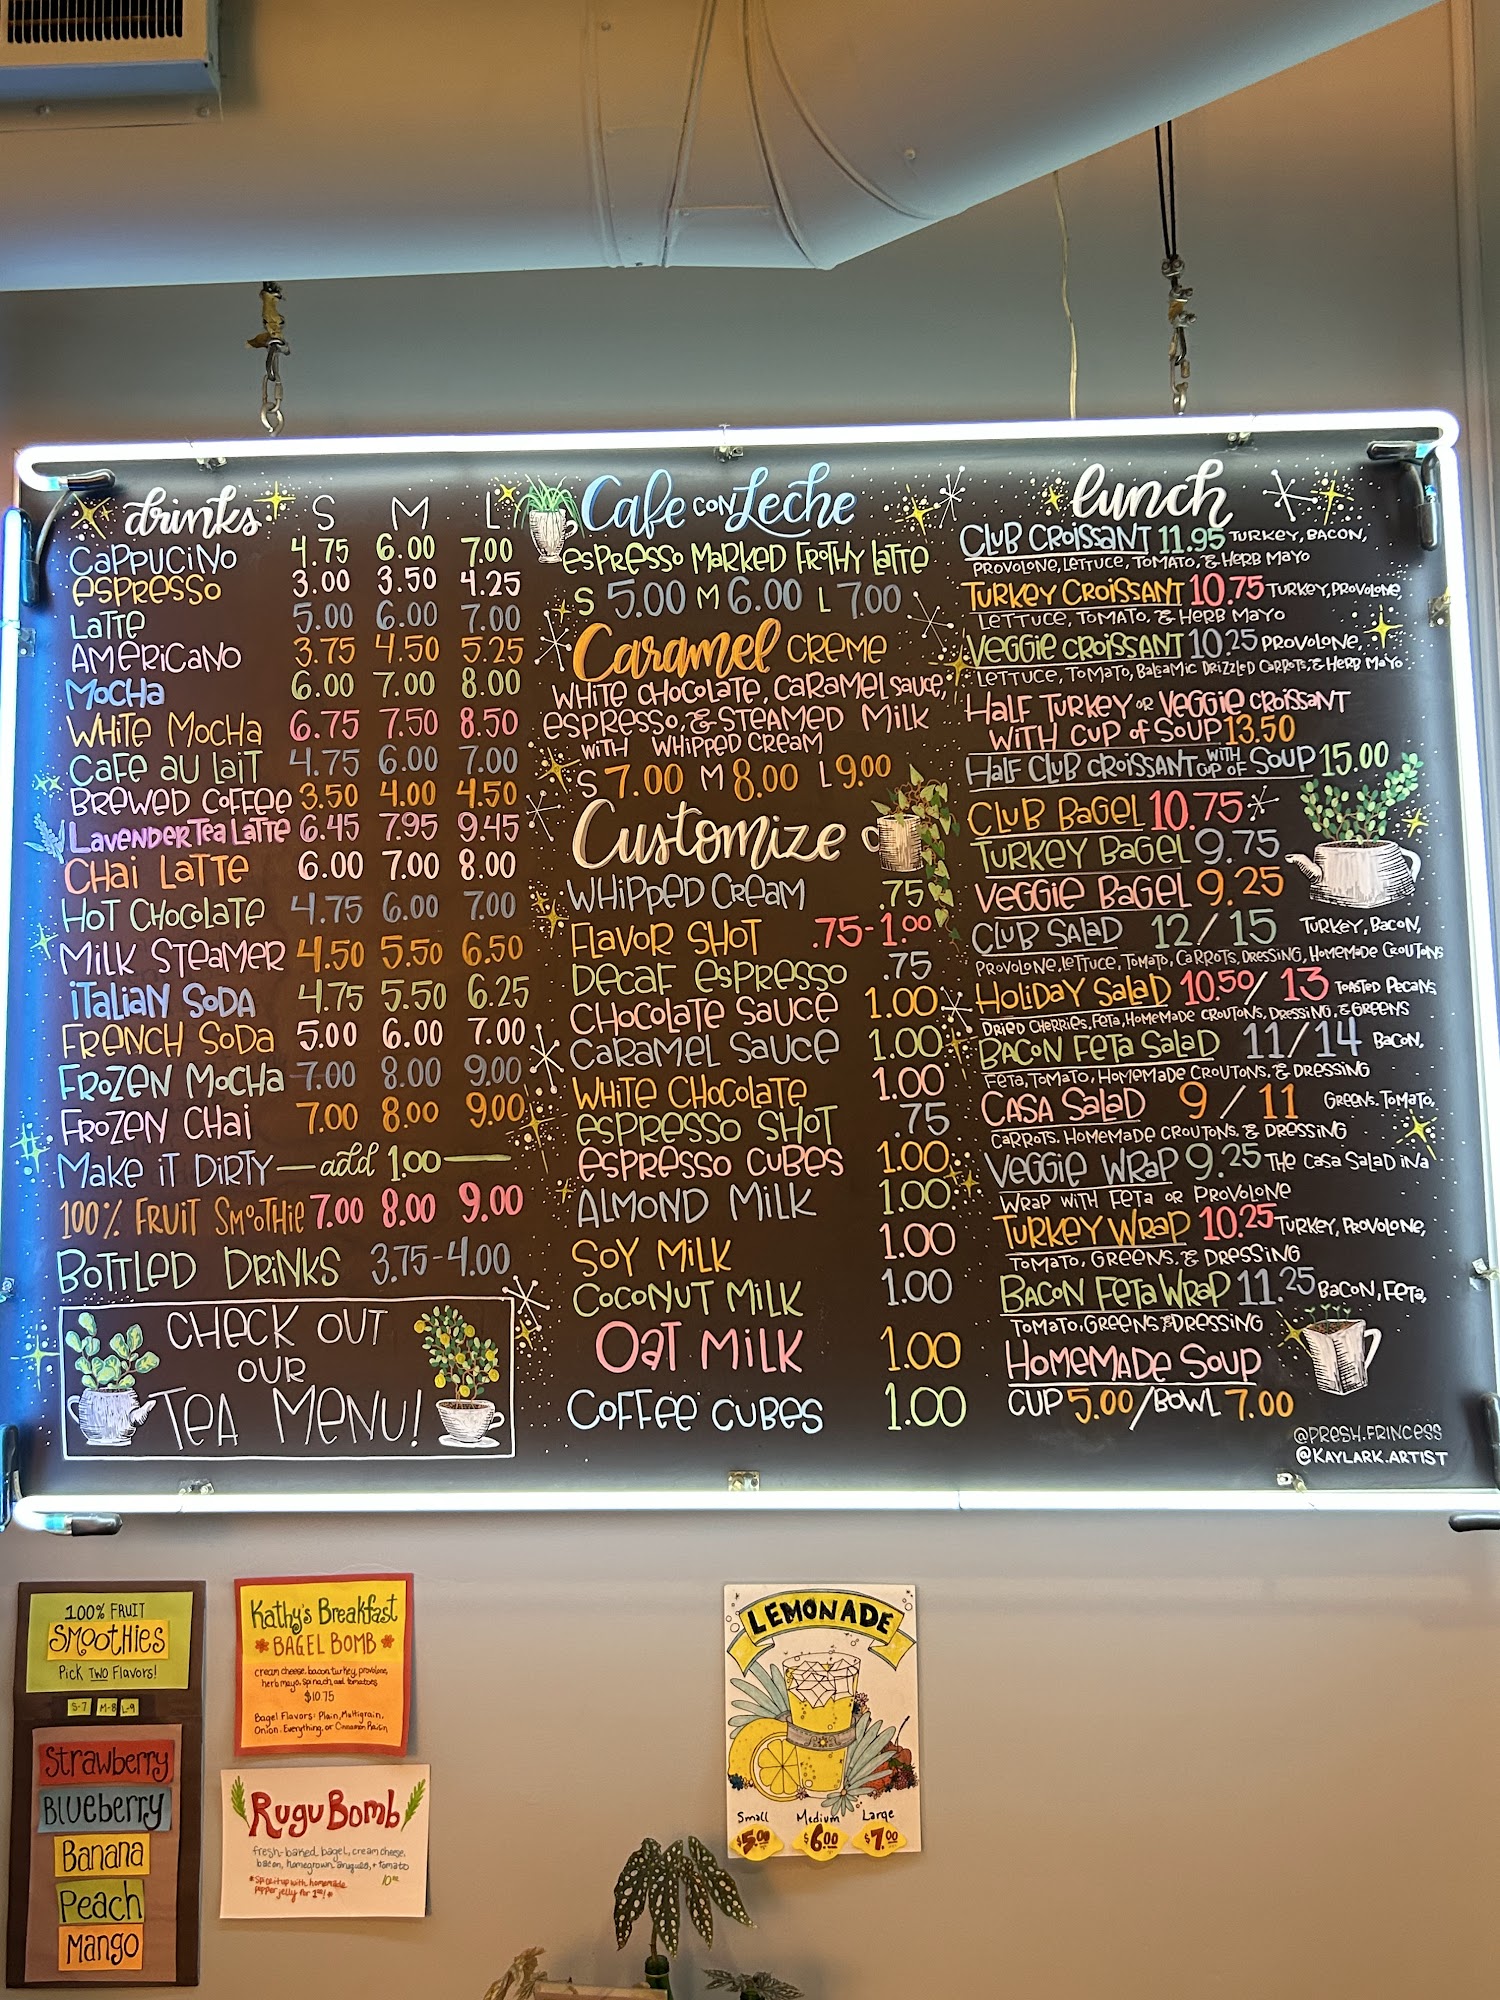 drinks S M L
CAPPUCINO 4.75 6.00 7.00
ESPRESSO 3.00 3.50 4.25
LATTE 5.00 6.00 7.00
AMERICANO 3.75 4.50 5.25
MOCHA 6.00 7.00 8.00
WHITE MOCHA 6.75 7.50 8.50
CAFE AU LAIT 4.75 6.00 7.00
BREWED COFFEE 3.50 4.00 4.50
LAVENDER TEA LATTE 6.45 7.95 9.45
CHAI LATTE 6.00 7.00 8.00
HOT CHOCOLATE 4.75 6.00 7.00
MILK STEAMER 4.50 5.50 6.50
ITALIAN SODA 4.75 5.50 6.25
FRENCH SODA 5.00 6.00 7.00
FROZEN MOCHA 7.00 8.00 9.00
FROZEN CHAI 7.00 8.00 9.00
MAKE IT DIRTY — add 1.00 —
100% FRUIT SMOOTHIE 7.00 8.00 9.00
BOTTLED DRINKS 3.75-4.00
CHECK OUT
OUR
TEA MENU!
Cafe CON Leche
ESPRESSO MARKED FROTHY LATTE
S 5.00 M 6.00 L 7.00
Caramel CREME
WHITE CHOCOLATE, CARAMEL SAUCE,
ESPRESSO, & STEAMED MILK
WITH WHIPPED CREAM
S 7.00 M 8.00 L 9.00
Customize
WHIPPED CREAM .75
FLAVOR SHOT .75-1.00
DECAF ESPRESSO .75
CHOCOLATE SAUCE 1.00
CARAMEL SAUCE 1.00
WHITE CHOCOLATE 1.00
ESPRESSO SHOT .75
ESPRESSO CUBES 1.00
ALMOND MILK 1.00
SOY MILK 1.00
COCONUT MILK 1.00
OAT MILK 1.00
COFFEE CUBES 1.00
lunch
CLUB CROISSANT 11.95 TURKEY, BACON,
PROVOLONE, LETTUCE, TOMATO, & HERB MAYO
TURKEY CROISSANT 10.75 TURKEY, PROVOLONE,
LETTUCE, TOMATO, & HERB MAYO
VEGGIE CROISSANT 10.25 PROVOLONE,
LETTUCE, TOMATO, BALSAMIC DRIZZLED CARROTS, & HERB MAYO
HALF TURKEY OR VEGGIE CROISSANT
WITH CUP OF SOUP 13.50
HALF CLUB CROISSANT WITH CUP OF SOUP 15.00
CLUB BAGEL 10.75
TURKEY BAGEL 9.75
VEGGIE BAGEL 9.25
CLUB SALAD 12/15 TURKEY, BACON,
PROVOLONE, LETTUCE, TOMATO, CARROTS, DRESSING, HOMEMADE CROUTONS
HOLIDAY SALAD 10.50/13 TOASTED PECANS,
DRIED CHERRIES, FETA, HOMEMADE CROUTONS, DRESSING, & GREENS
BACON FETA SALAD 11/14 BACON,
FETA, TOMATO, HOMEMADE CROUTONS, & DRESSING
CASA SALAD 9/11 GREENS, TOMATO,
CARROTS, HOMEMADE CROUTONS, & DRESSING
VEGGIE WRAP 9.25 THE CASA SALAD IN A
WRAP WITH FETA OR PROVOLONE
TURKEY WRAP 10.25 TURKEY, PROVOLONE,
TOMATO, GREENS, & DRESSING
BACON FETA WRAP 11.25 BACON, FETA,
TOMATO, GREENS & DRESSING
HOMEMADE SOUP
CUP 5.00/BOWL 7.00
@PRESH.FRINCESS
@KAYLARK.ARTIST
100% FRUIT
SMOOTHIES
Pick TWO Flavors!
S-7 M-8 L-9
Strawberry
Blueberry
Banana
Peach
Mango
Kathy's Breakfast
BAGEL BOMB
cream cheese, bacon, turkey, provolone,
herb mayo, spinach, and tomatoes
$10.75
Bagel Flavors: Plain, Multigrain,
Onion, Everything, or Cinnamon Raisin
Rugu Bomb
fresh-baked bagel, cream cheese,
bacon, homegrown arugula, + tomato
10.00
*spice it up with homemade
pepper jelly for 1.00!*
LEMONADE
Small Medium Large
$5.00 $6.00 $7.00